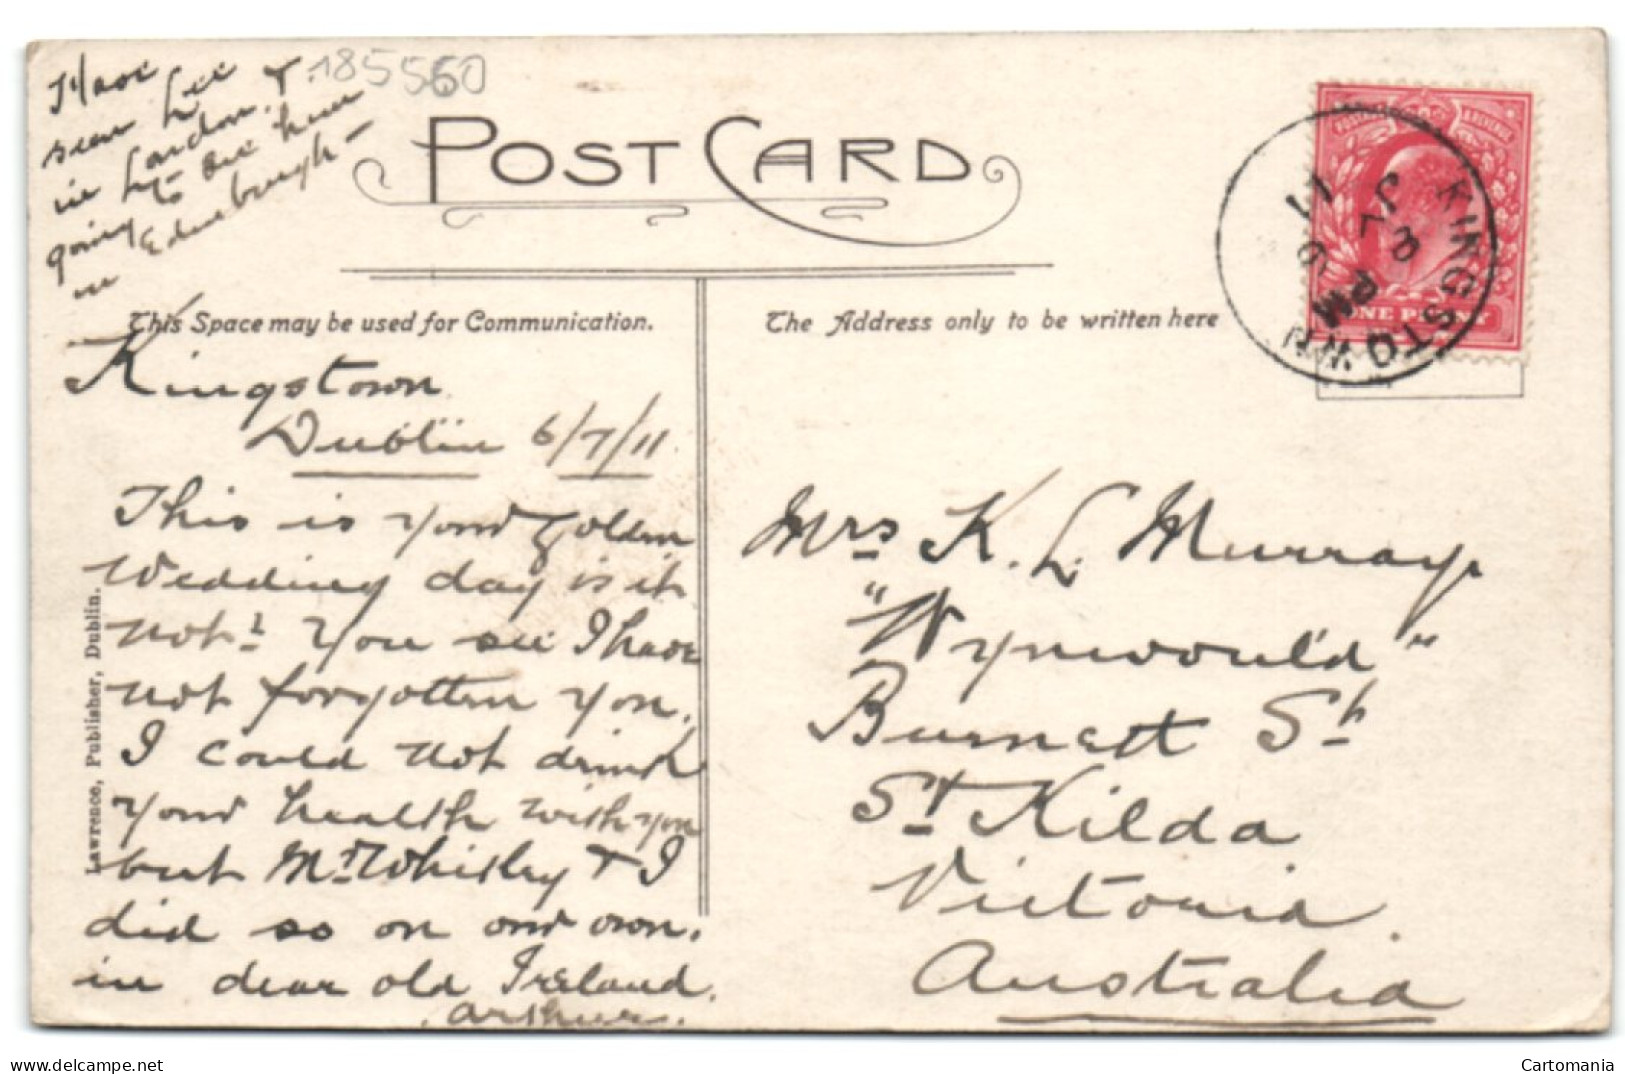 Have
seen Lee
in London. &
going to see him
in Edinborough -
185560
POST CARD
This Space may be used for Communication.
The Address only to be written here
POSTAGE & REVENUE
ONE PENNY
KINGSTOWN
3 PM
JY 6
11
Kingstown
Dublin 6/7/11.
This is your golden
Wedding day is it
not? You see I have
not forgotten you.
I could not drink
your health with you
but Mr Whisky & I
did so on our own.
in dear old Ireland.
Arthur.
Mrs K. L. Murray.
"Wynwould"
Burnett St
St Kilda
Victoria.
Australia
Lawrence, Publisher, Dublin.
delcampe.net
Cartomania